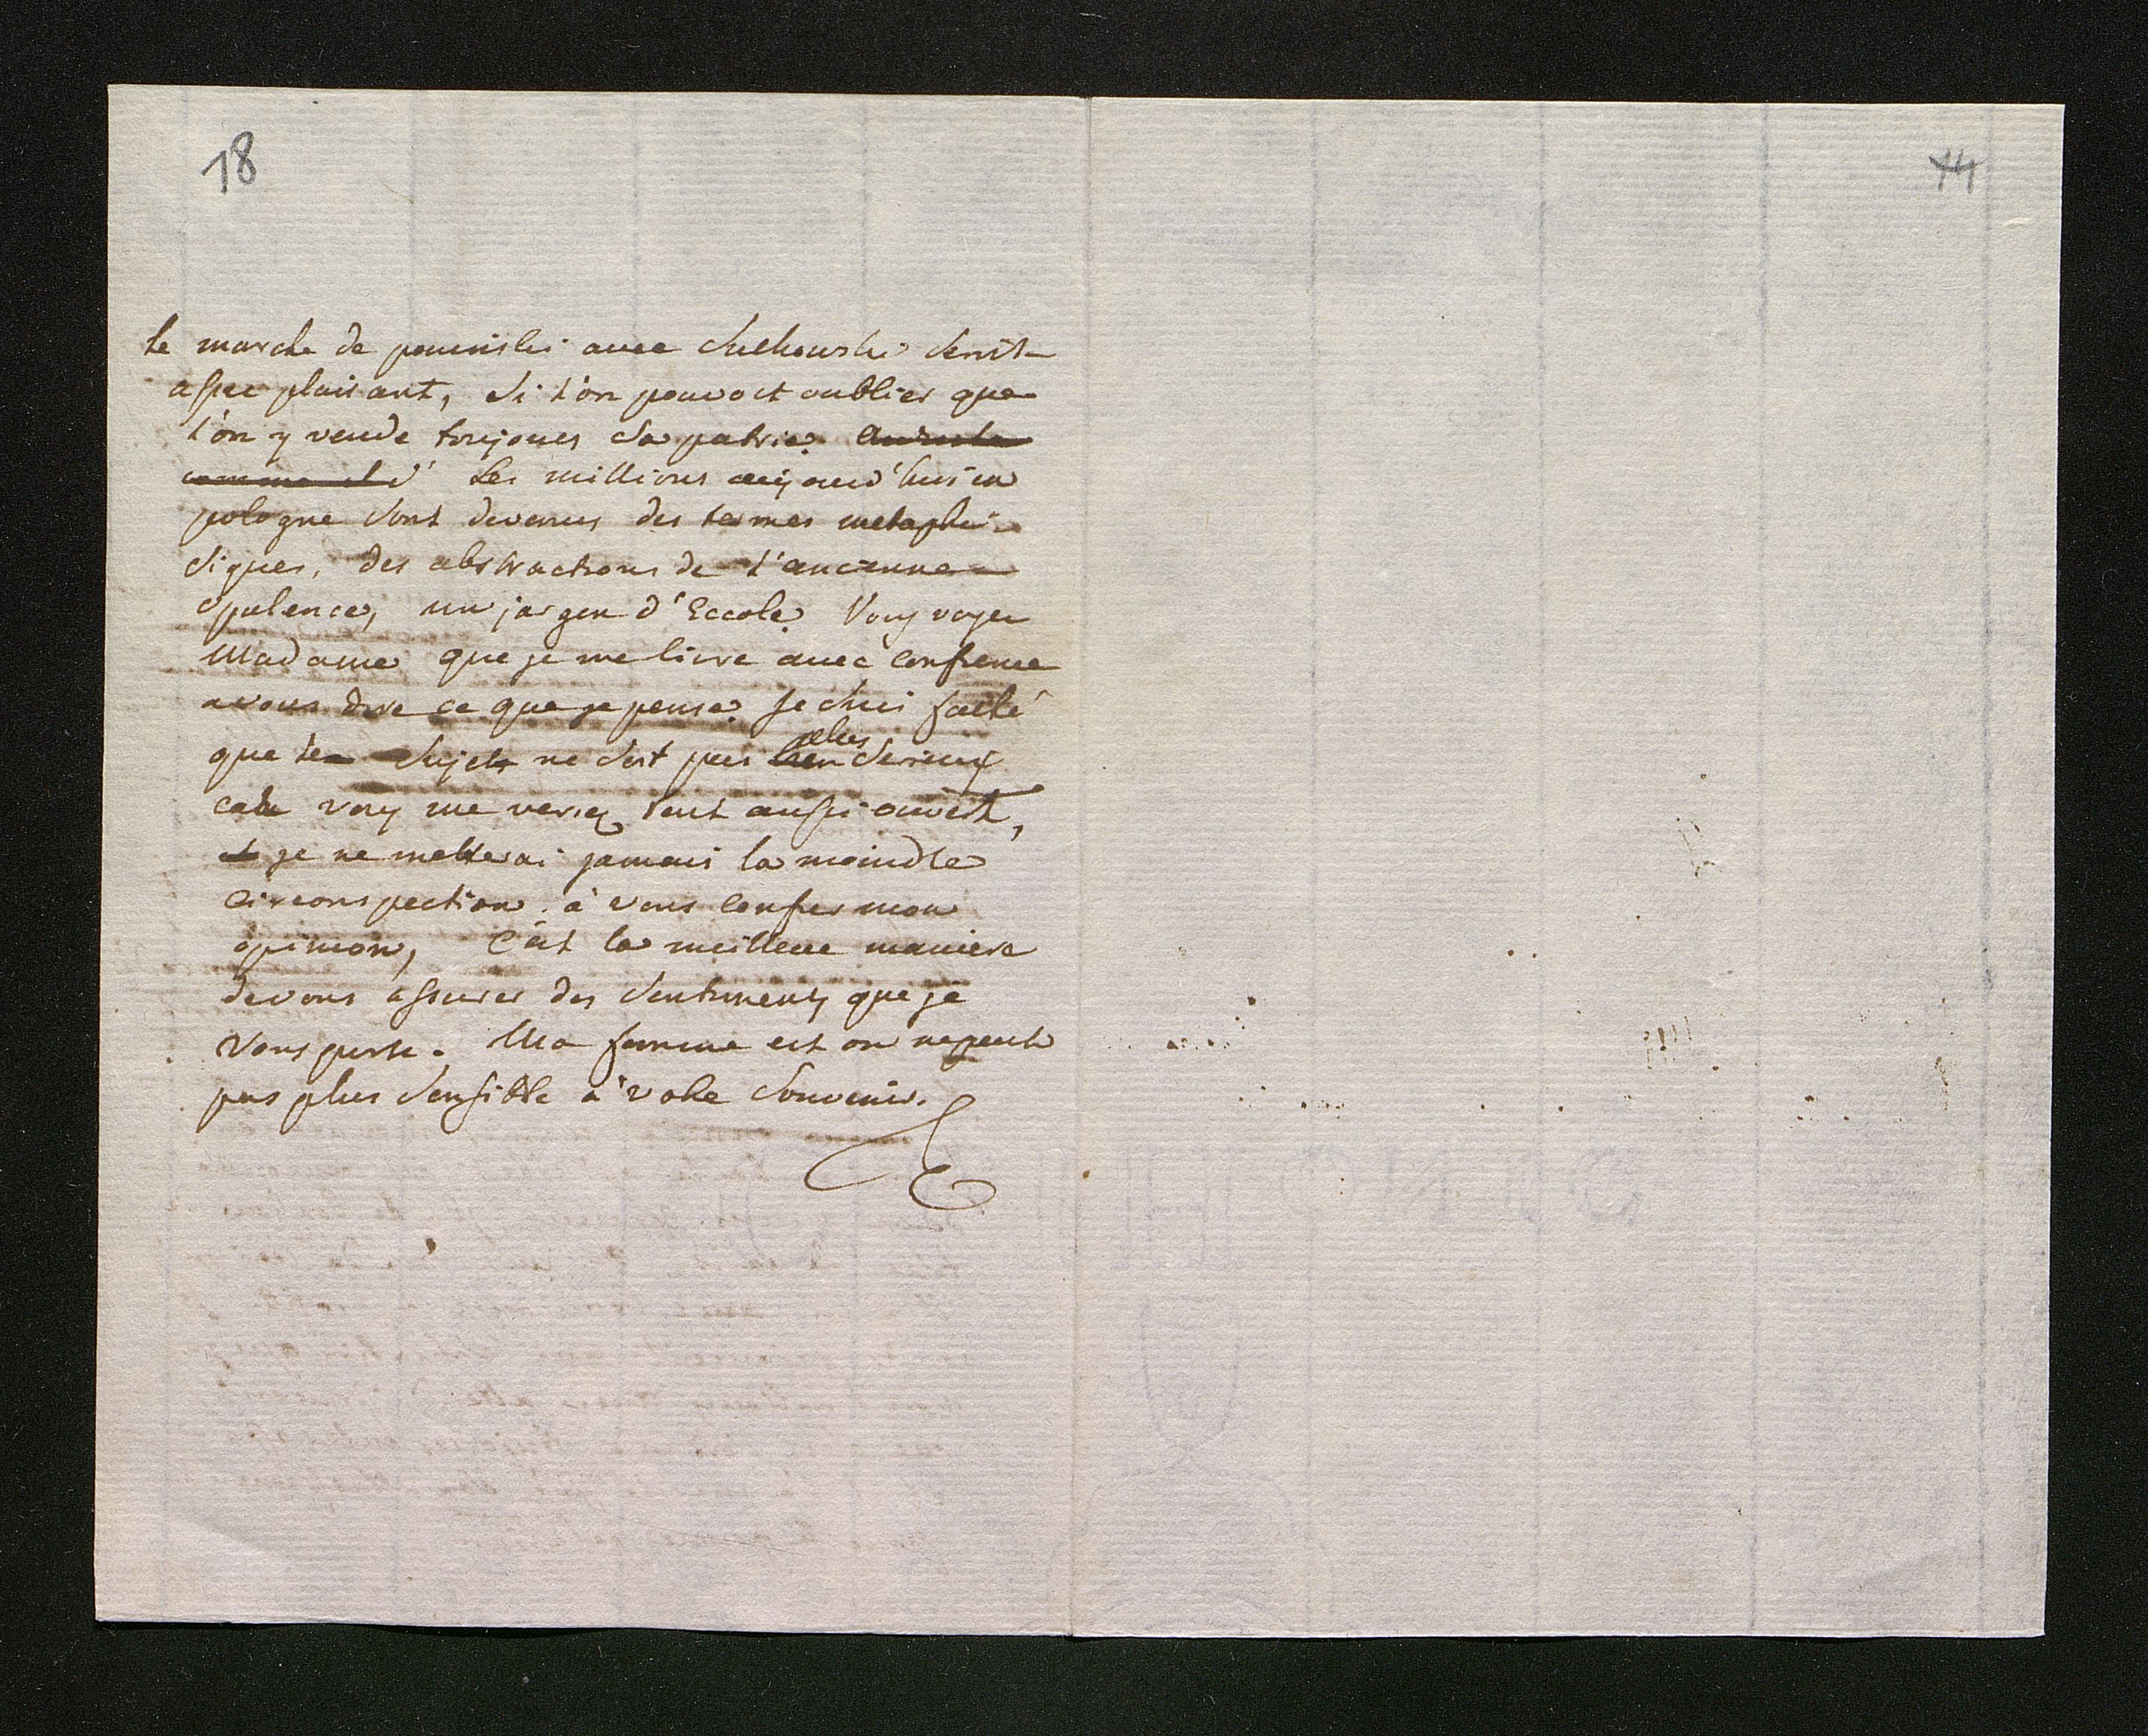 18
le marche de poninski avec Sulkowski seroit
assez plaisant, si l'on pouvoit oublier que
l'on y vende toujours sa patrie.
comme Les millions aujourd'hui en
pologne sont devenus des termes metaphi-
siques, des abstractions de l'ancienne
opulence, un jargon d'Eccole. Vous voyez
Madame que je me livre avec confience
a vous dire ce que je pense. Je suis faché
que le sujet ne soit pas plus serieux
car vous me veriez tout aussi ouvert,
et je ne metterai jamais la moindre
circonspection à vous confier mon
opinion, C'est la meilleure maniere
de vous assurer des sentiments que je
vous porte. Ma femme est on ne peut
pas plus sensible à votre souvenir.